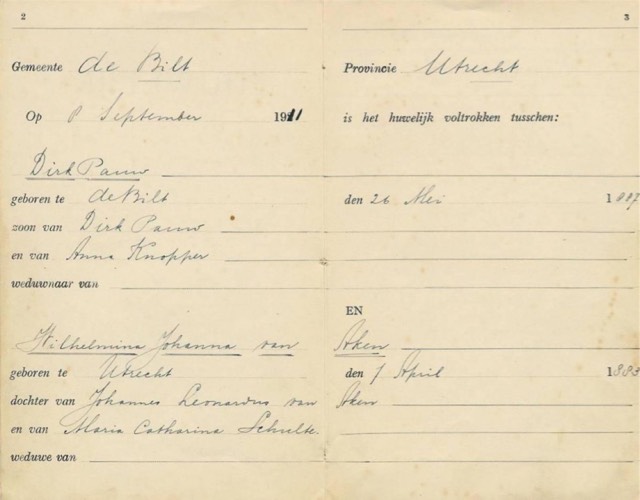 2
3
Gemeente de Bilt
Provincie Utrecht
Op 8 September 1911
is het huwelijk voltrokken tusschen:
Dirk Pauw
geboren te de Bilt
den 26 Mei 1887
zoon van Dirk Pauw
en van Anna Knopper
weduwnaar van
EN
Wilhelmina Johanna van Aken
geboren te Utrecht
den 7 April 1883
dochter van Johannes Leonardus van Aken
en van Maria Catharina Schulte.
weduwe van